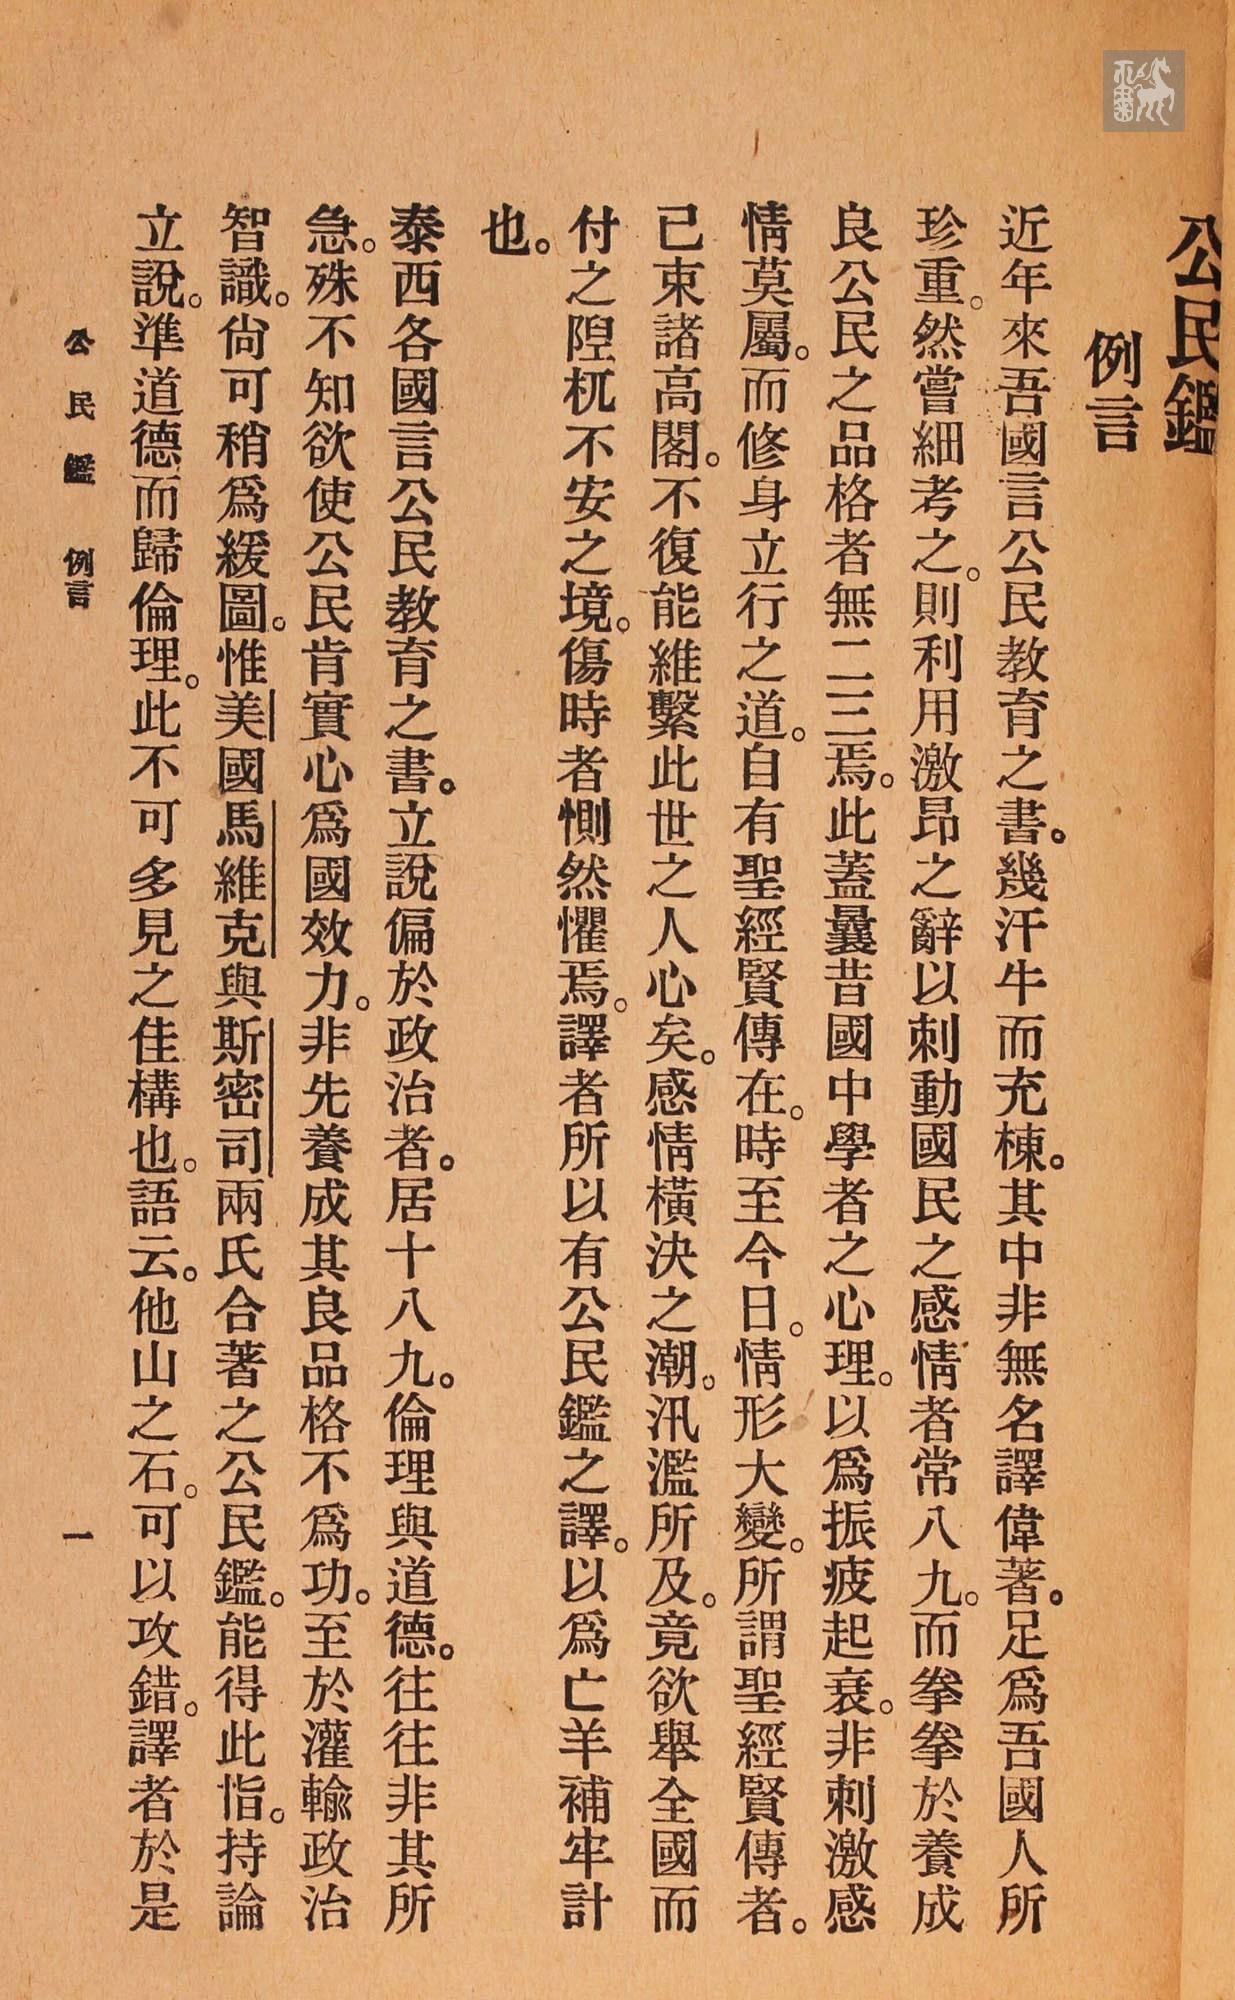 公民鑑
例言
近年來吾國言公民教育之書。幾汗牛而充棟。其中非無名譯偉著。足爲吾國人所
珍重。然嘗細考之。則利用激昂之辭以刺動國民之感情者常八九。而拳拳於養成
良公民之品格者無二三焉。此蓋曩昔國中學者之心理。以爲振疲起衰。非刺激感
情莫屬。而修身立行之道。自有聖經賢傳在。時至今日。情形大變。所謂聖經賢傳者。
已束諸高閣。不復能維繫此世之人心矣。感情橫決之潮。汛濫所及。竟欲舉全國而
付之隉杌不安之境。傷時者惻然懼焉。譯者所以有公民鑑之譯。以爲亡羊補牢計
也。
泰西各國言公民教育之書。立說偏於政治者。居十八九。倫理與道德。往往非其所
急。殊不知欲使公民肯實心爲國效力。非先養成其良品格不爲功。至於灌輸政治
智識。尙可稍爲緩圖。惟美國馬維克與斯密司兩氏合著之公民鑑。能得此恉。持論
立說。準道德而歸倫理。此不可多見之佳構也。語云。他山之石。可以攻錯。譯者於是
公民鑑 例言 一